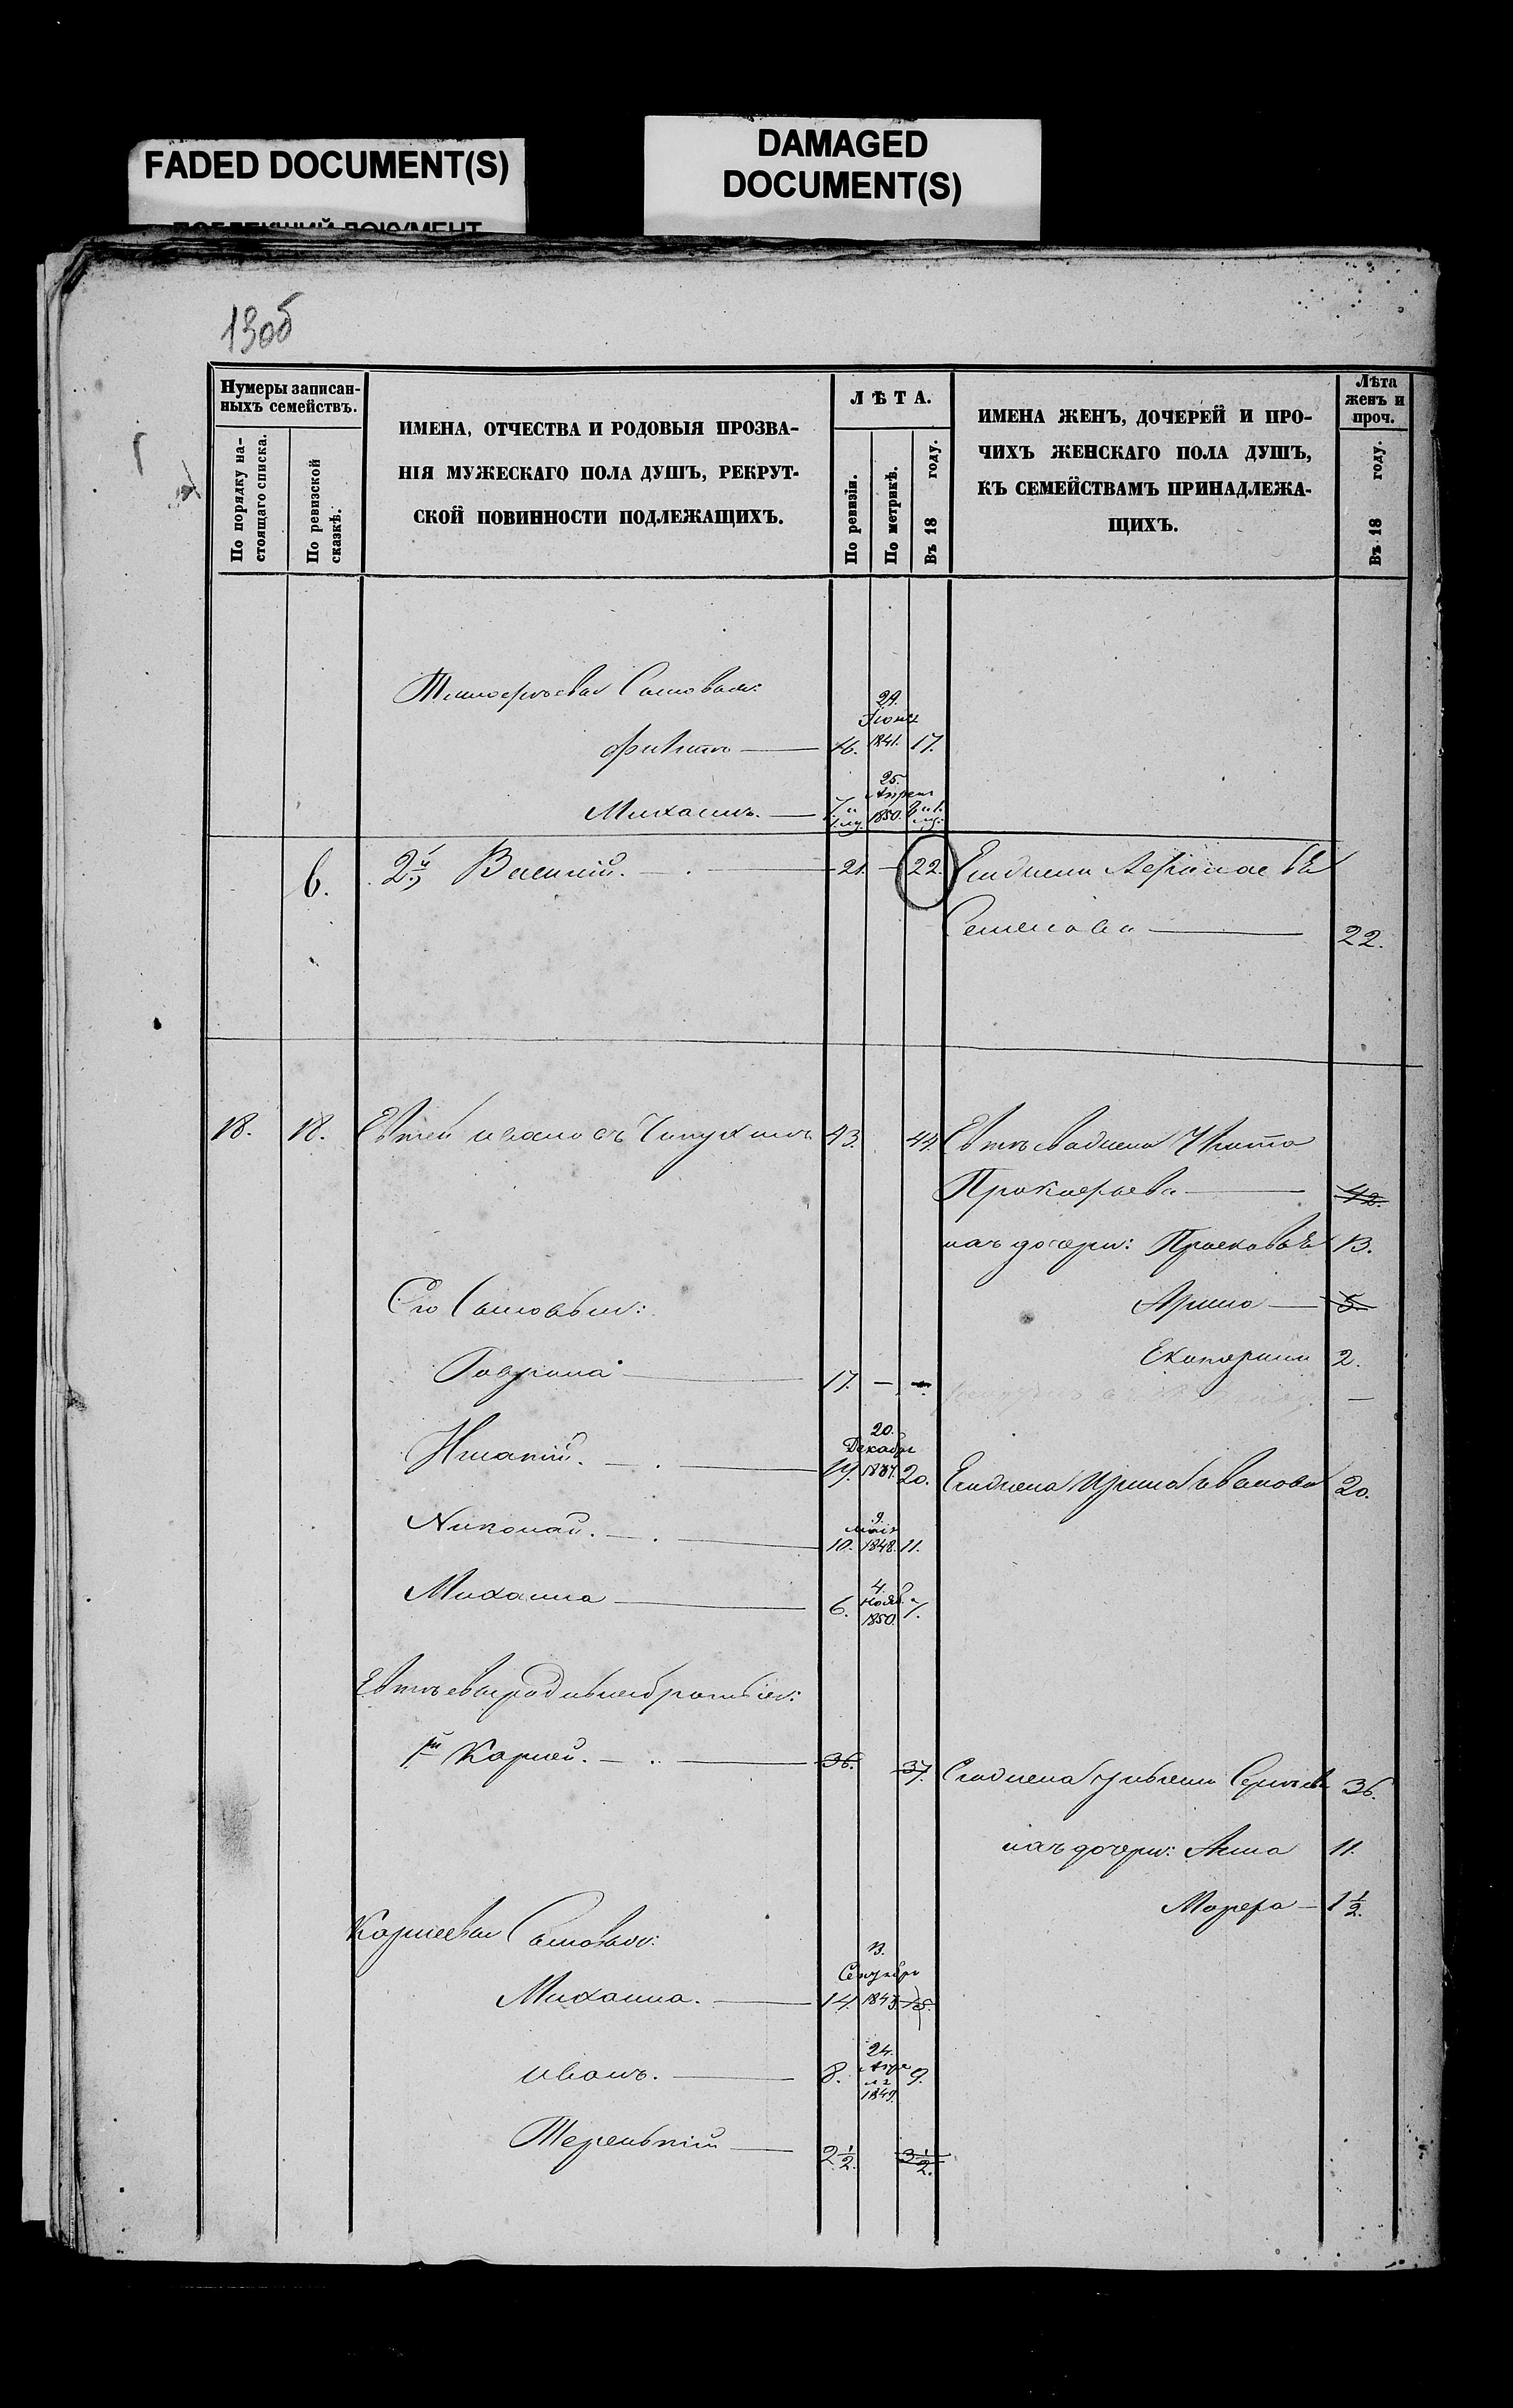 FADED DOCUMENT(S)
DAMAGED
DOCUMENT(S)
130б
Нумеры записан-
ныхъ семействъ.
По порядку на-
стоящаго списка.
По ревизской
сказкѣ.
ИМЕНА, ОТЧЕСТВА И РОДОВЫЯ ПРОЗВА-
НІЯ МУЖЕСКАГО ПОЛА ДУШЪ, РЕКРУТ-
СКОЙ ПОВИННОСТИ ПОДЛЕЖАЩИХЪ.
ЛѢТА.
По ревизіи.
По метрикѣ.
Въ 18 году.
ИМЕНА ЖЕНЪ, ДОЧЕРЕЙ И ПРО-
ЧИХЪ ЖЕНСКАГО ПОЛА ДУШЪ,
КЪ СЕМЕЙСТВАМЪ ПРИНАДЛЕЖА-
ЩИХЪ.
Лѣта
женъ и
проч.
Въ 18 году.
Тимофѣевы Сыновья:
Филипъ — 16. 29. Іюня 1841. 17.
Михаилъ. — 25. Апреля 1850.
6. 2й Василій. — 21. — 22. Его жена
Семенова — 22.
18. 18. Евтей Ивановъ 43. 44. Евтѣева жена
Прокофьева — 42.
ихъ дочери: Прасковья 13.
Его Сыновья:
Арина — 5.
Екатерина 2.
Гаврила — 17. —
Игнатій. — 19. 20. Декабря 1837. 20. Его жена Ирина Иванова 20.
Николай. — 10. 9. Мая 1848. 11.
Михаила — 6. 4. Нояб. 1850. 7.
Евтѣевы родные братья:
1й Карней. — 36. 37. Его жена 36.
ихъ дочери: Анна 11.
Марфа — 1 1/2.
Карнеевы Сыновья:
Михаила. — 14. 13. Сентября 1843. 15.
Иванъ. — 8. 24. Апреля 1849. 9.
Терентій — 2 1/2. 3 1/2.